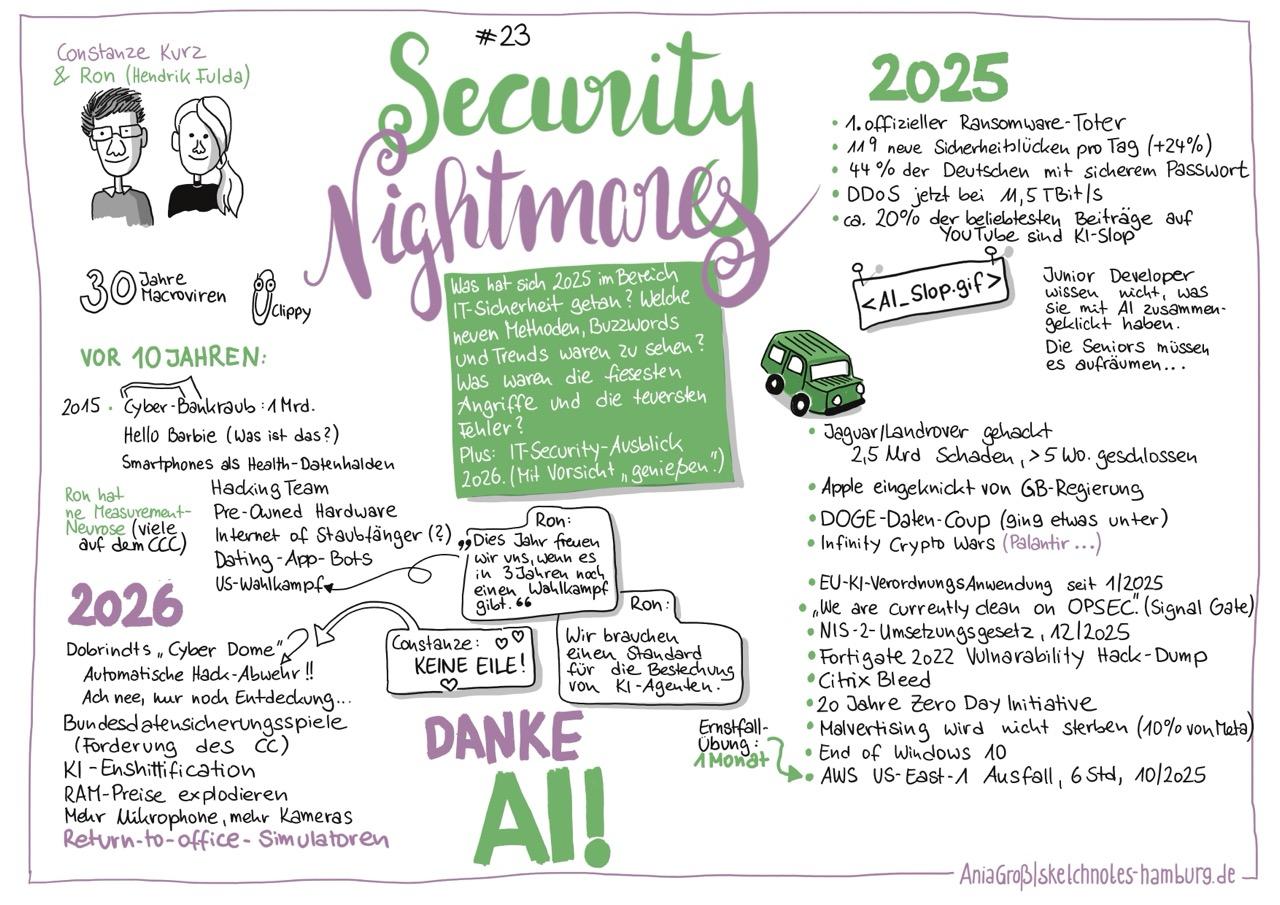 Constanze Kurz
& Ron (Hendrik Fulda)
#23
Security
Nightmares
30 Jahre
Macroviren
Clippy
VOR 10 JAHREN:
2015 • Cyber-Bankraub : 1 Mrd.
Hello Barbie (Was ist das?)
Smartphones als Health-Datenhalden
Hacking Team
Pre-Owned Hardware
Internet of Staubfänger (?)
Dating-App-Bots
US-Wahlkampf
Ron hat
ne Measurement-
Neurose (viele
auf dem CCC)
2026
Dobrindts „Cyber Dome"
Automatische Hack-Abwehr !!
Ach nee, nur noch Entdeckung...
Bundesdatensicherungsspiele
(Forderung des CC)
KI-Enshittification
RAM-Preise explodieren
Mehr Mikrophone, mehr Kameras
Return-to-office-Simulatoren
Was hat sich 2025 im Bereich
IT-Sicherheit getan? Welche
neuen Methoden, Buzzwords
und Trends waren zu sehen?
Was waren die fiesesten
Angriffe und die teuersten
Fehler?
Plus: IT-Security-Ausblick
2026. (Mit Vorsicht „genießen".)
Ron:
„Dies Jahr freuen
wir uns, wenn es
in 3 Jahren noch
einen Wahlkampf
gibt.“
Constanze:
KEINE EILE!
Ron:
Wir brauchen
einen Standard
für die Bestechung
von KI-Agenten.
DANKE
AI!
2025
• 1. offizieller Ransomware-Toter
• 119 neue Sicherheitslücken pro Tag (+24%)
• 44% der Deutschen mit sicherem Passwort
• DDoS jetzt bei 11,5 TBit/s
• ca. 20% der beliebtesten Beiträge auf
YouTube sind KI-Slop
<AI_Slop.gif>
Junior Developer
wissen nicht, was
sie mit AI zusammen-
geklickt haben.
Die Seniors müssen
es aufräumen...
• Jaguar/Landrover gehackt
2,5 Mrd Schaden, >5 Wo. geschlossen
• Apple eingeknickt von GB-Regierung
• DOGE-Daten-Coup (ging etwas unter)
• Infinity Crypto Wars (Palantir...)
• EU-KI-VerordnungsAnwendung seit 1/2025
• „We are currently clean on OPSEC." (Signal Gate)
• NIS-2-Umsetzungsgesetz, 12/2025
• Fortigate 2022 Vulnarability Hack-Dump
• Citrix Bleed
• 20 Jahre Zero Day Initiative
• Malvertising wird nicht sterben (10% von Meta)
• End of Windows 10
• AWS US-East-1 Ausfall, 6 Std, 10/2025
Ernstfall-
Übung:
1 Monat
AniaGroß|sketchnotes-hamburg.de